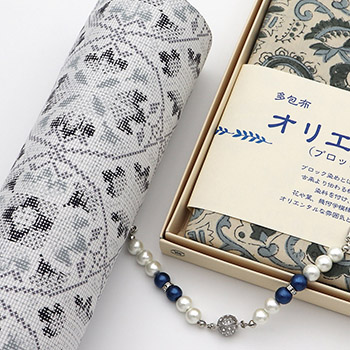 多包布
オリエ
(ブロッ
ブロック染めとは
古来より伝わるも
染料を付け、
花や葉、幾何学模様
オリエンタルな雰囲気と